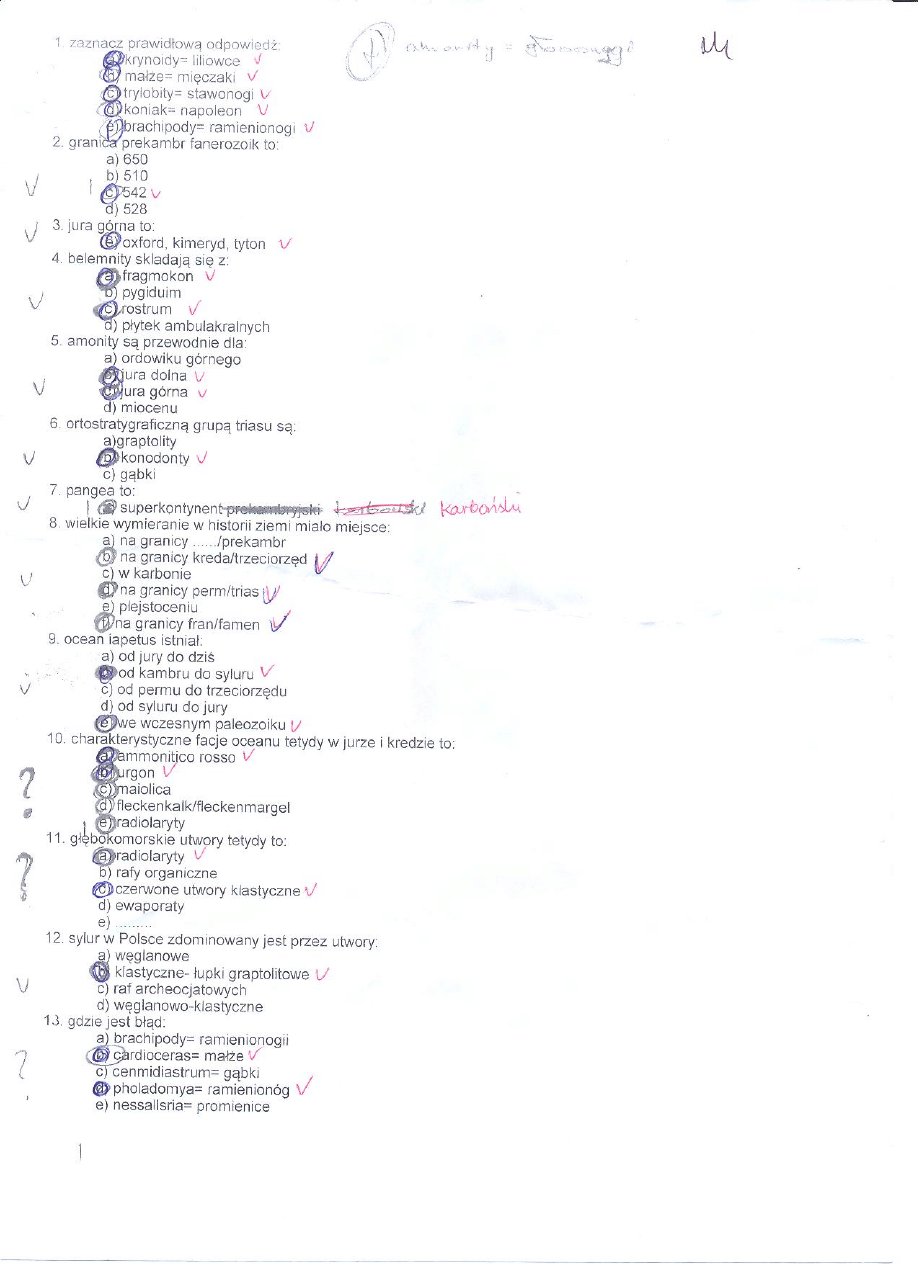 1. zaznacz prawidłową odpowiedź:
amonity = głowonogi
a) krynoidy= liliowce
b) małże= mięczaki
c) trylobity= stawonogi
d) koniak= napoleon
e) brachipody= ramienionogi
2. granica prekambr fanerozoik to:
a) 650
b) 510
c) 542
d) 528
3. jura górna to:
a) oxford, kimeryd, tyton
4. belemnity składają się z:
a) fragmokon
b) pygiduim
c) rostrum
d) płytek ambulakralnych
5. amonity są przewodnie dla:
a) ordowiku górnego
b) jura dolna
c) jura górna
d) miocenu
6. ortostratygraficzną grupą triasu są:
a)graptolity
b) konodonty
c) gąbki
7. pangea to:
a) superkontynent prekambryjski karboński karboński
8. wielkie wymieranie w historii ziemi miało miejsce:
a) na granicy ....../prekambr
b) na granicy kreda/trzeciorzęd
c) w karbonie
d) na granicy perm/trias
e) plejstoceniu
f) na granicy fran/famen
9. ocean iapetus istniał:
a) od jury do dziś
b) od kambru do syluru
c) od permu do trzeciorzędu
d) od syluru do jury
e) we wczesnym paleozoiku
10. charakterystyczne facje oceanu tetydy w jurze i kredzie to:
a) ammonitico rosso
b) urgon
c) maiolica
d) fleckenkalk/fleckenmargel
e) radiolaryty
11. głębokomorskie utwory tetydy to:
a) radiolaryty
b) rafy organiczne
c) czerwone utwory klastyczne
d) ewaporaty
e) .........
12. sylur w Polsce zdominowany jest przez utwory:
a) węglanowe
b) klastyczne- łupki graptolitowe
c) raf archeocjatowych
d) węglanowo-klastyczne
13. gdzie jest błąd:
a) brachipody= ramienionogii
b) cardioceras= małże
c) cenmidiastrum= gąbki
d) pholadomya= ramienionóg
e) nessallsria= promienice